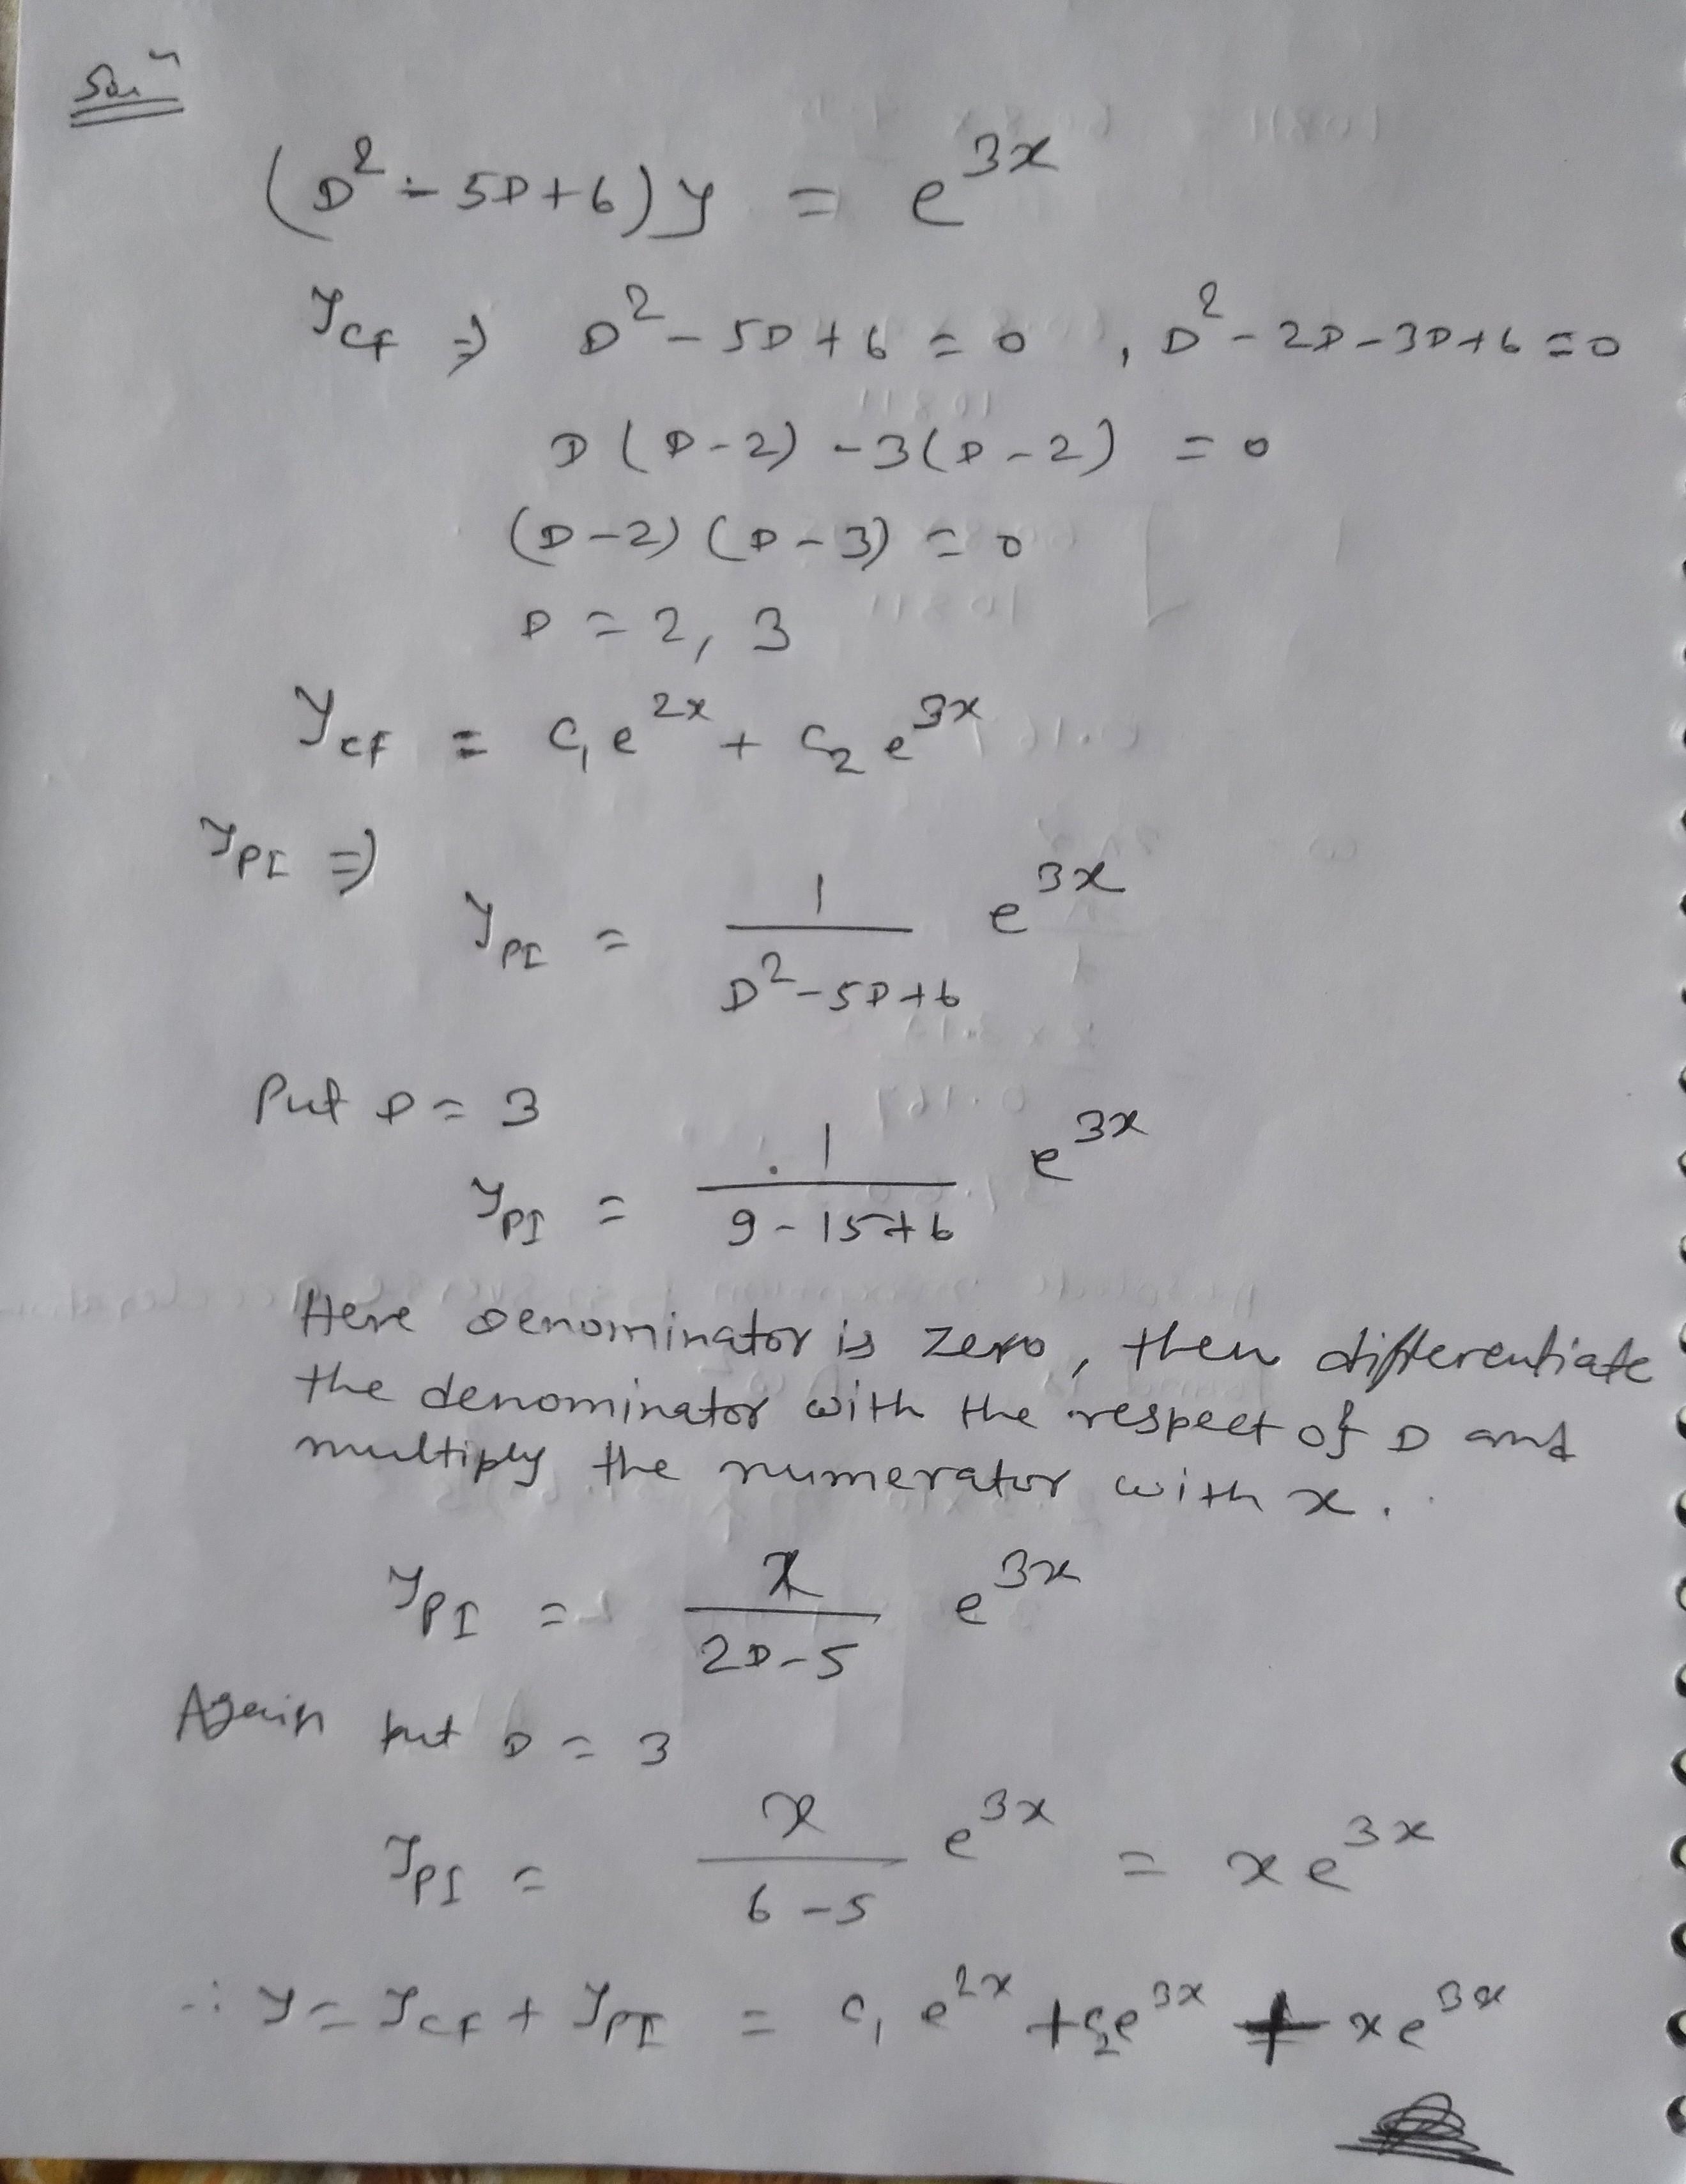 Solⁿ
(D² - 5D + 6) y = e^{3x}
y_CF ⇒ D² - 5D + 6 = 0 , D² - 2D - 3D + 6 = 0
D (D - 2) - 3(D - 2) = 0
(D - 2) (D - 3) = 0
D = 2, 3
y_CF = C₁e^{2x} + C₂e^{3x}
y_PI ⇒
y_PI = 1/(D² - 5D + 6) e^{3x}
Put D = 3
y_PI = 1/(9 - 15 + 6) e^{3x}
Here Denominator is zero, then differentiate
the denominator with the respect of D and
multiply the numerator with x.
y_PI = x/(2D - 5) e^{3x}
Again put D = 3
y_PI = x/(6 - 5) e^{3x} = x e^{3x}
∴ y = y_CF + y_PI = C₁ e^{2x} + C₂e^{3x} + x e^{3x}